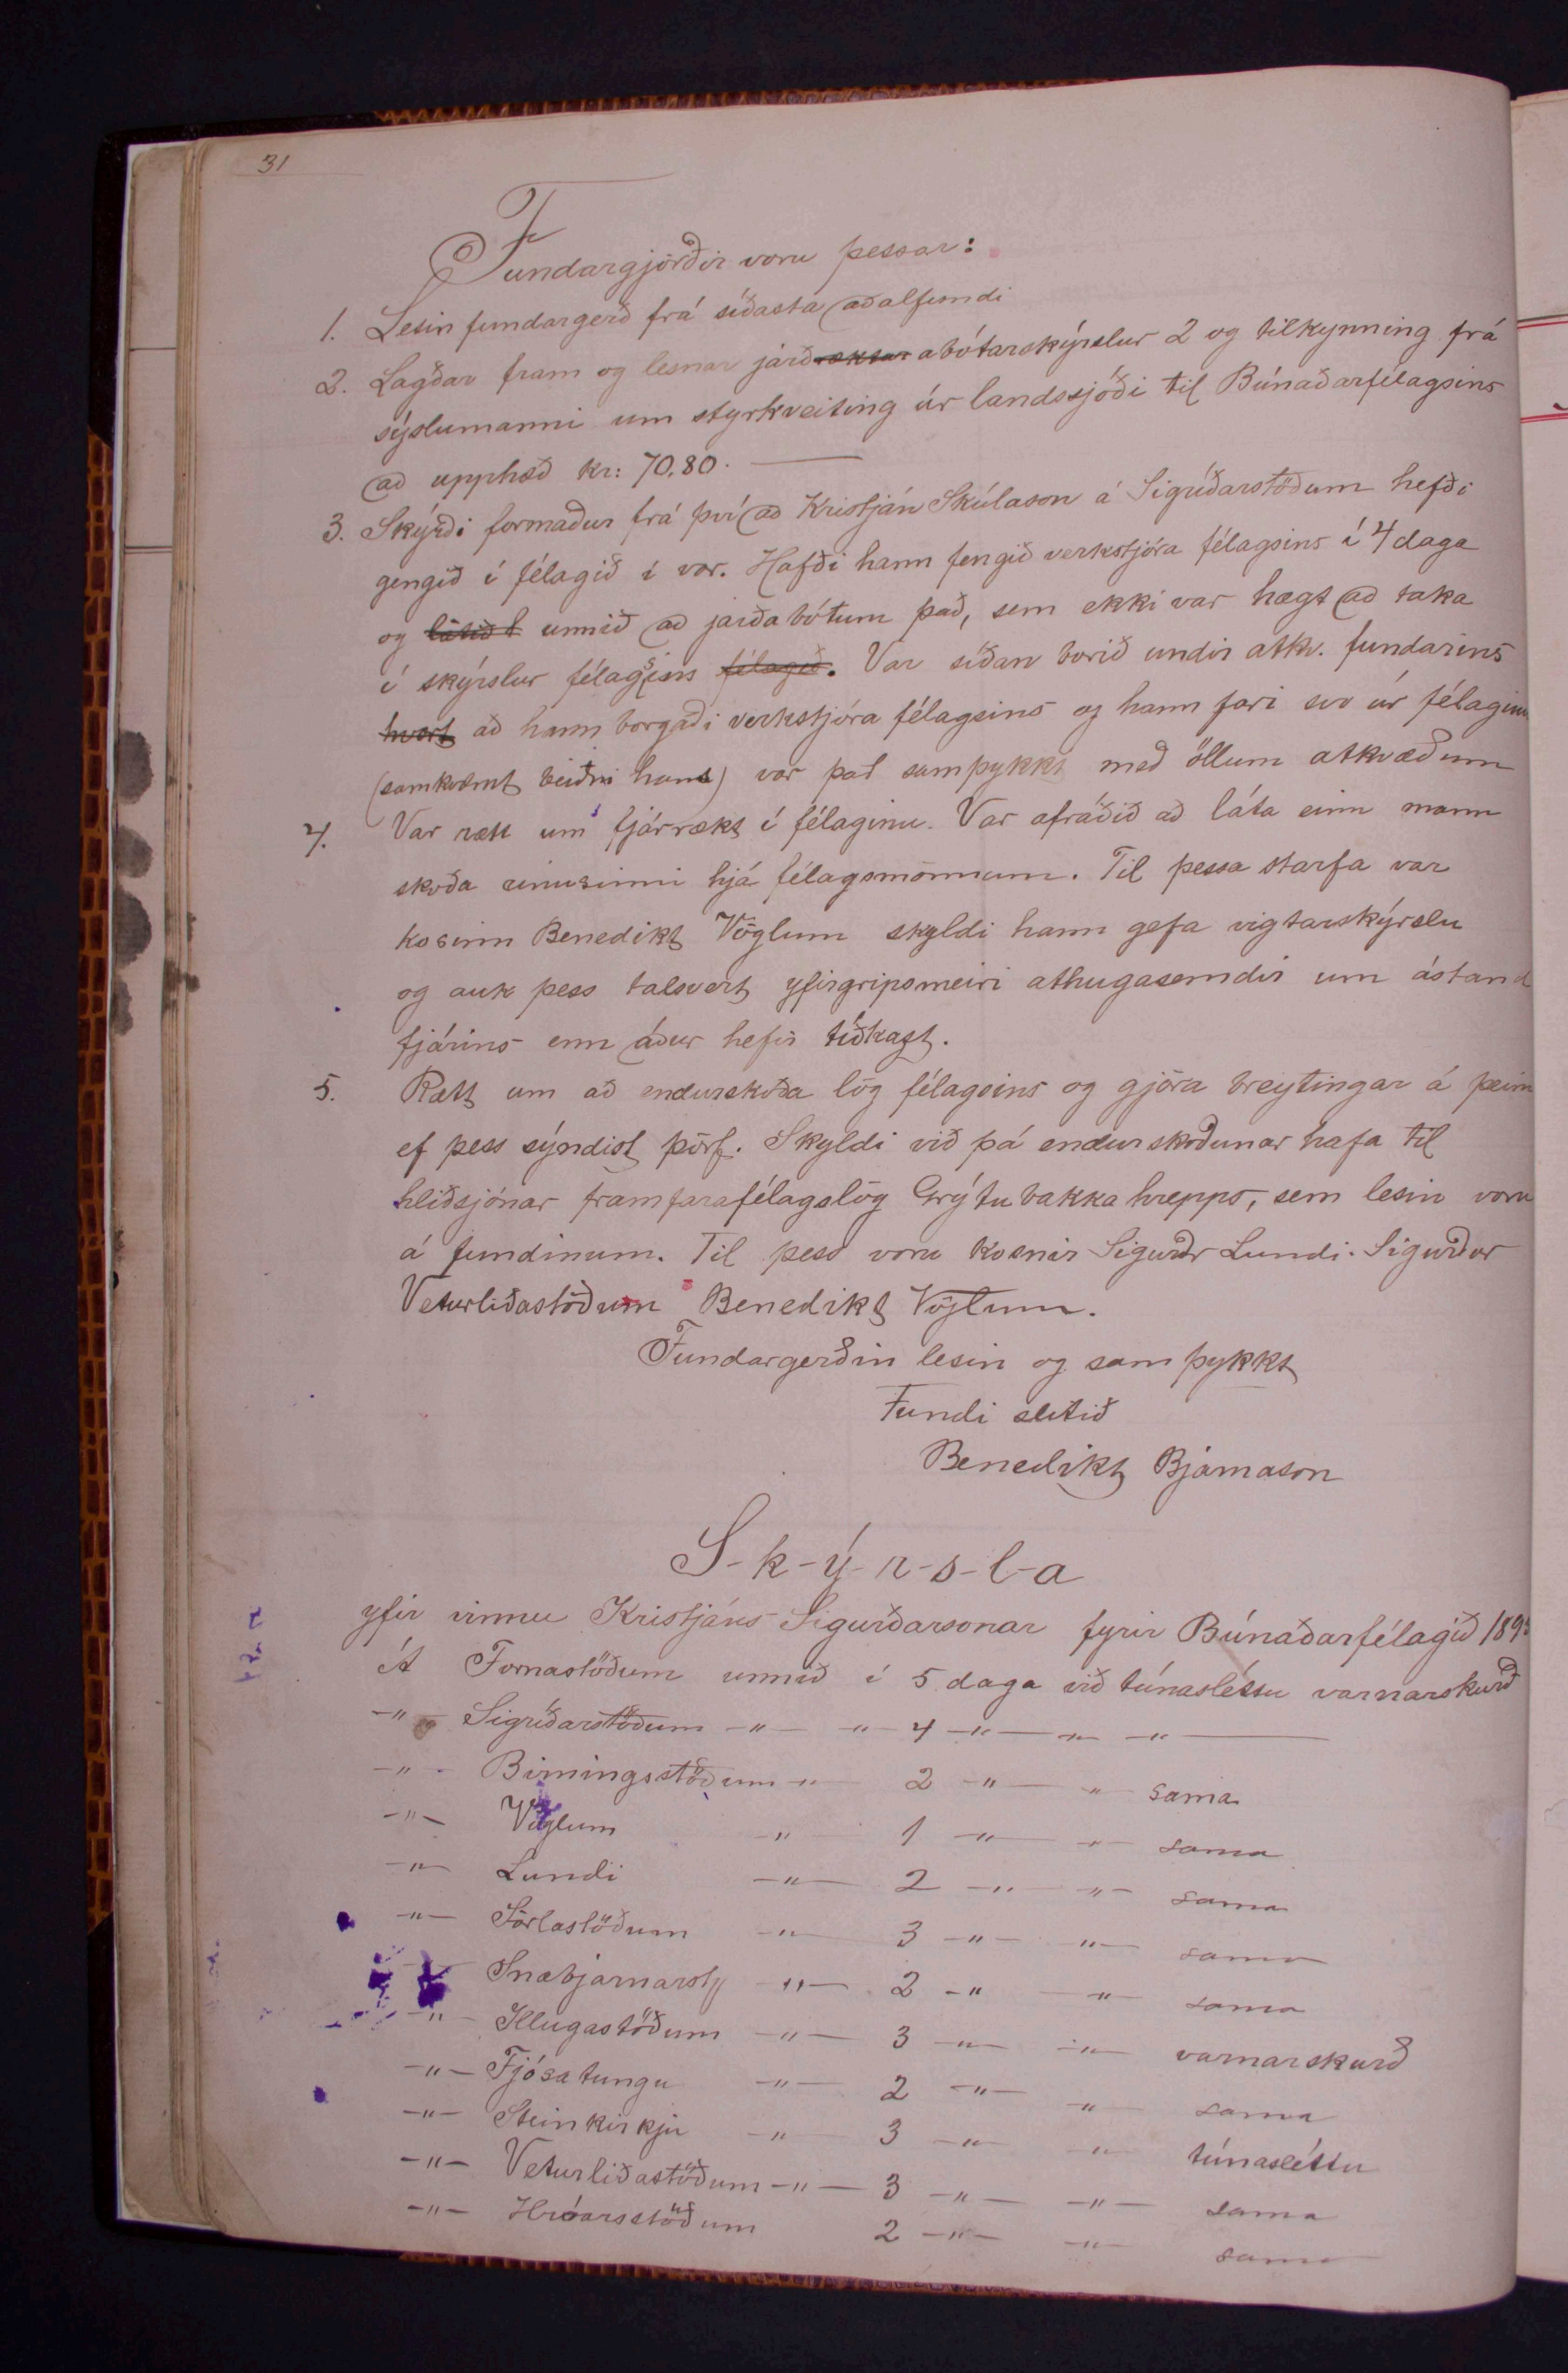 31
Fundargjörðir voru þessar:
1. Lesin fundargerð frá síðasta aðalfundi
2. Lagðar fram og lesnar jarðræktar abótarskýrslur 2 og tilkynning frá
sýslumanni um styrkveiting úr landssjóði til Búnaðarfélagsins
að upphæð kr: 70,80.
3. Skýrði formaður frá því að Kristján Skúlason á Sigríðarstöðum hefði
gengið í félagið í vor. Hafði hann fengið verkstjóra félagsins í 4 daga
og látið unnið að jarðabótum það, sem ekki var hægt að taka
í skýrslur félagsins félagið. Var síðan borið undir atkv. fundarins
hvort að hann borgaði verkstjóra félagsins og hann fari svo úr félaginu
(samkvæmt beiðni hans) var það samþykkt með öllum atkvæðum
4. Var rætt um fjárrækt í félaginu. Var afráðið að láta einn mann
skoða einusinni hjá félagsmönnum. Til þessa starfa var
kosinn Benedikt Vöglum skyldi hann gefa vigtarskýrslu
og auk þess talsvert yfirgripsmeiri athugasemdir um ástand
fjárins enn áður hefir tíðkast.
5. Rætt um að endurskoða lög félagsins og gjöra breytingar á þeim
ef þess sýndist þörf. Skyldi við þá endurskoðunar hafa til
hliðsjónar framfarafélagslög Grýtubakkahrepps, sem lesin voru
á fundinum. Til þess voru kosnir Sigurðr Lundi. Sigurður
Veturliðastöðum Benedikt Vöglum.
Fundargerðin lesin og samþykkt
Fundi slitið
Benedikt Bjarnason
S-k-ý-r-s-l-a
yfir vinnu Kristjáns Sigurðarsonar fyrir Búnaðarfélagið 189
Á Fornastöðum unnið í 5 daga við túnasléttu varnarskurð
-"- Sigríðarstöðum -"- -"- 4 -"- -"- -"-
-"- Birningsstöðum -"- 2 -"- " sama
-"- Vöglum -"- 1 -"- -"- sama
-"- Lundi -"- 2 -"- -"- sama
-"- Sörlastöðum -"- 3 -"- -"- sama
Snæbjarnarst -"- 2 -"- -"- sama
-"- Illugastöðum -"- 3 -"- -"- varnarskurð
-"- Fjósatungu -"- 2 -"- -"- sama
-"- Steinkirkju -"- 3 -"- -"- túnasléttu
-"- Veturliðastöðum -"- 3 -"- -"- sama
-"- Hróarsstöðum 2 -"- -"- sama